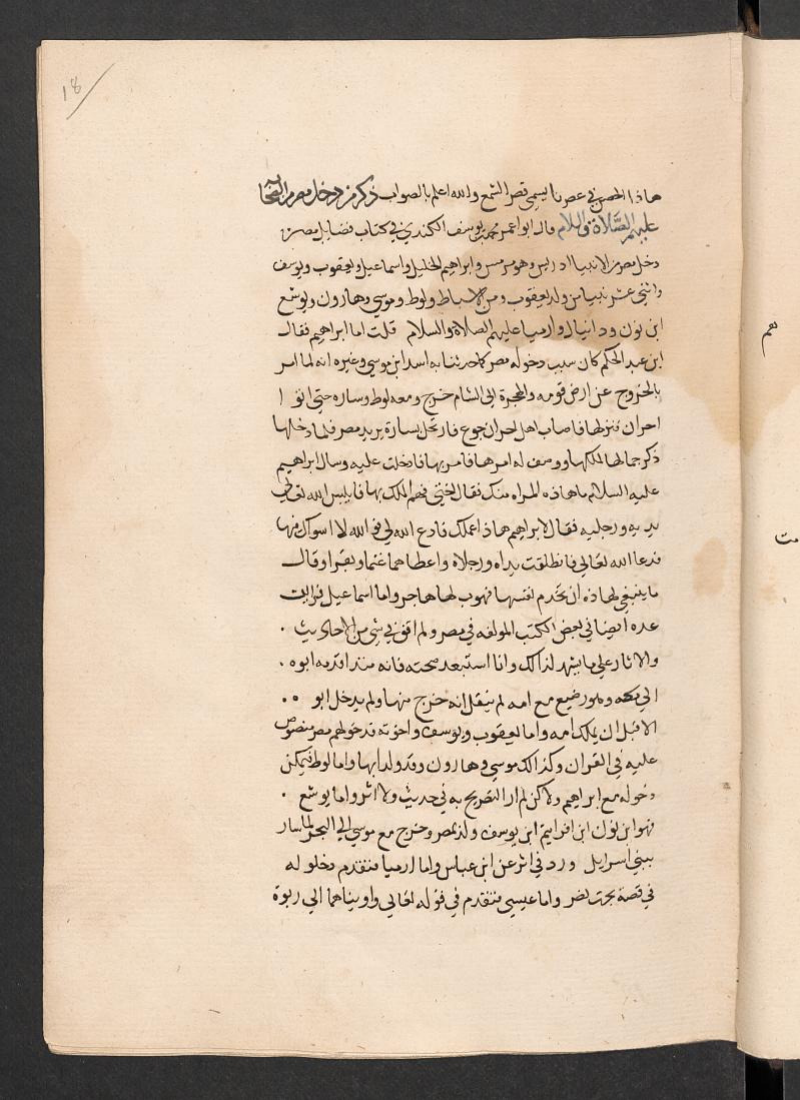 18
هاذا الحصن في عصرنا يسمى قصر الشمع والله اعلم بالصواب ذكر من دخل مصر من
عليهم الصلاة والسلام قال ابوا عمر محمد بن يوسف الكندي في كتاب فضايل مصر
دخل مصر من الانبيا ادريس وهو هرمس وابراهيم الخليل واسماعيل ويعقوب ويوسف
واثنى عشر نبيا من ولد يعقوب ومن الاسباط ولوط وموسى وهارون ويوشع
ابن نون ودانيال وارميا عليهم الصلاة والسلام قلت اما ابراهيم فقال
ابن عبد الحكم كان سبب دخوله مصر كما حدثنا به اسد ابن موسى وغيره انه لما امر
بالخروج عن ارض قومه والهجرة الى الشام خرج ومعه لوط وساره حتى اتو ا
احران فنزلها فاصاب اهل احران جوع فارتحل بسارة يريد مصر فلما دخلها
ذكر جمالها لملكها ووصف له امرها فامر بها فادخلت عليه وسال ابراهيم
عليه السلام ما هاذه المراه منك فقال اختي فهم الملك بها فايبس الله تعالى
يديه ورجليه فقال لابراهيم هاذا عملك فادع الله لي فوالله لا اسوك فيها
فدعا الله تعالى فانطلقت يداه ورجلاه واعطاهما غنما وبقرا وقال
ما ينبغي لهاذه ان تخدم نفسها فوهب لها هاجر واما اسماعيل فرايت
عده ايضا في بعض الكتب المولفه في مصر ولم اقف في شي من الاحاديث .
والاثار على ما يشهد لذالك وانا استبعد صحته فانه منذ اقدمه ابوه .
الى مكه وهو رضيع مع امه لم ينقل انه خرج منها ولم يدخل ابو . .
الا قبل ان يملك امه واما يعقوب ويوسف واخوته فدخولهم مصر منصوص
عليه في القران وكذالك موسى وهارون وقد ولد ابها واما لوط فيمكن
دخوله مع ابراهيم ولاكن لم ار التصريح به في حديث ولا اثر واما يوشع .
فهو ابن نون ابن افراييم ابن يوسف ولد بمصر وخرج مع موسى الى البحر لما سار
ببني اسرايل ورد في اثر عن ابن عباس واما ارميا فتقدم دخلوله
في قصة بخت نصر واما عيسى فتقدم في قوله تعالى واويناهما الى ربوة